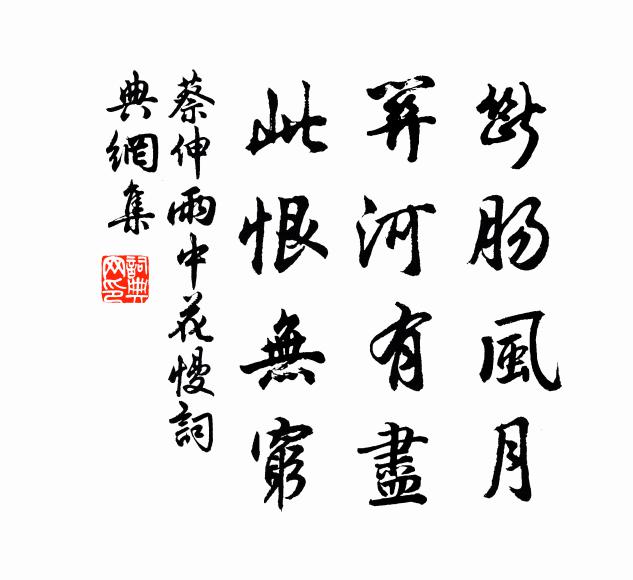 斷腸風月
關河有盡
此恨無窮
蔡伸雨中花慢詞
典網集
詞典網印